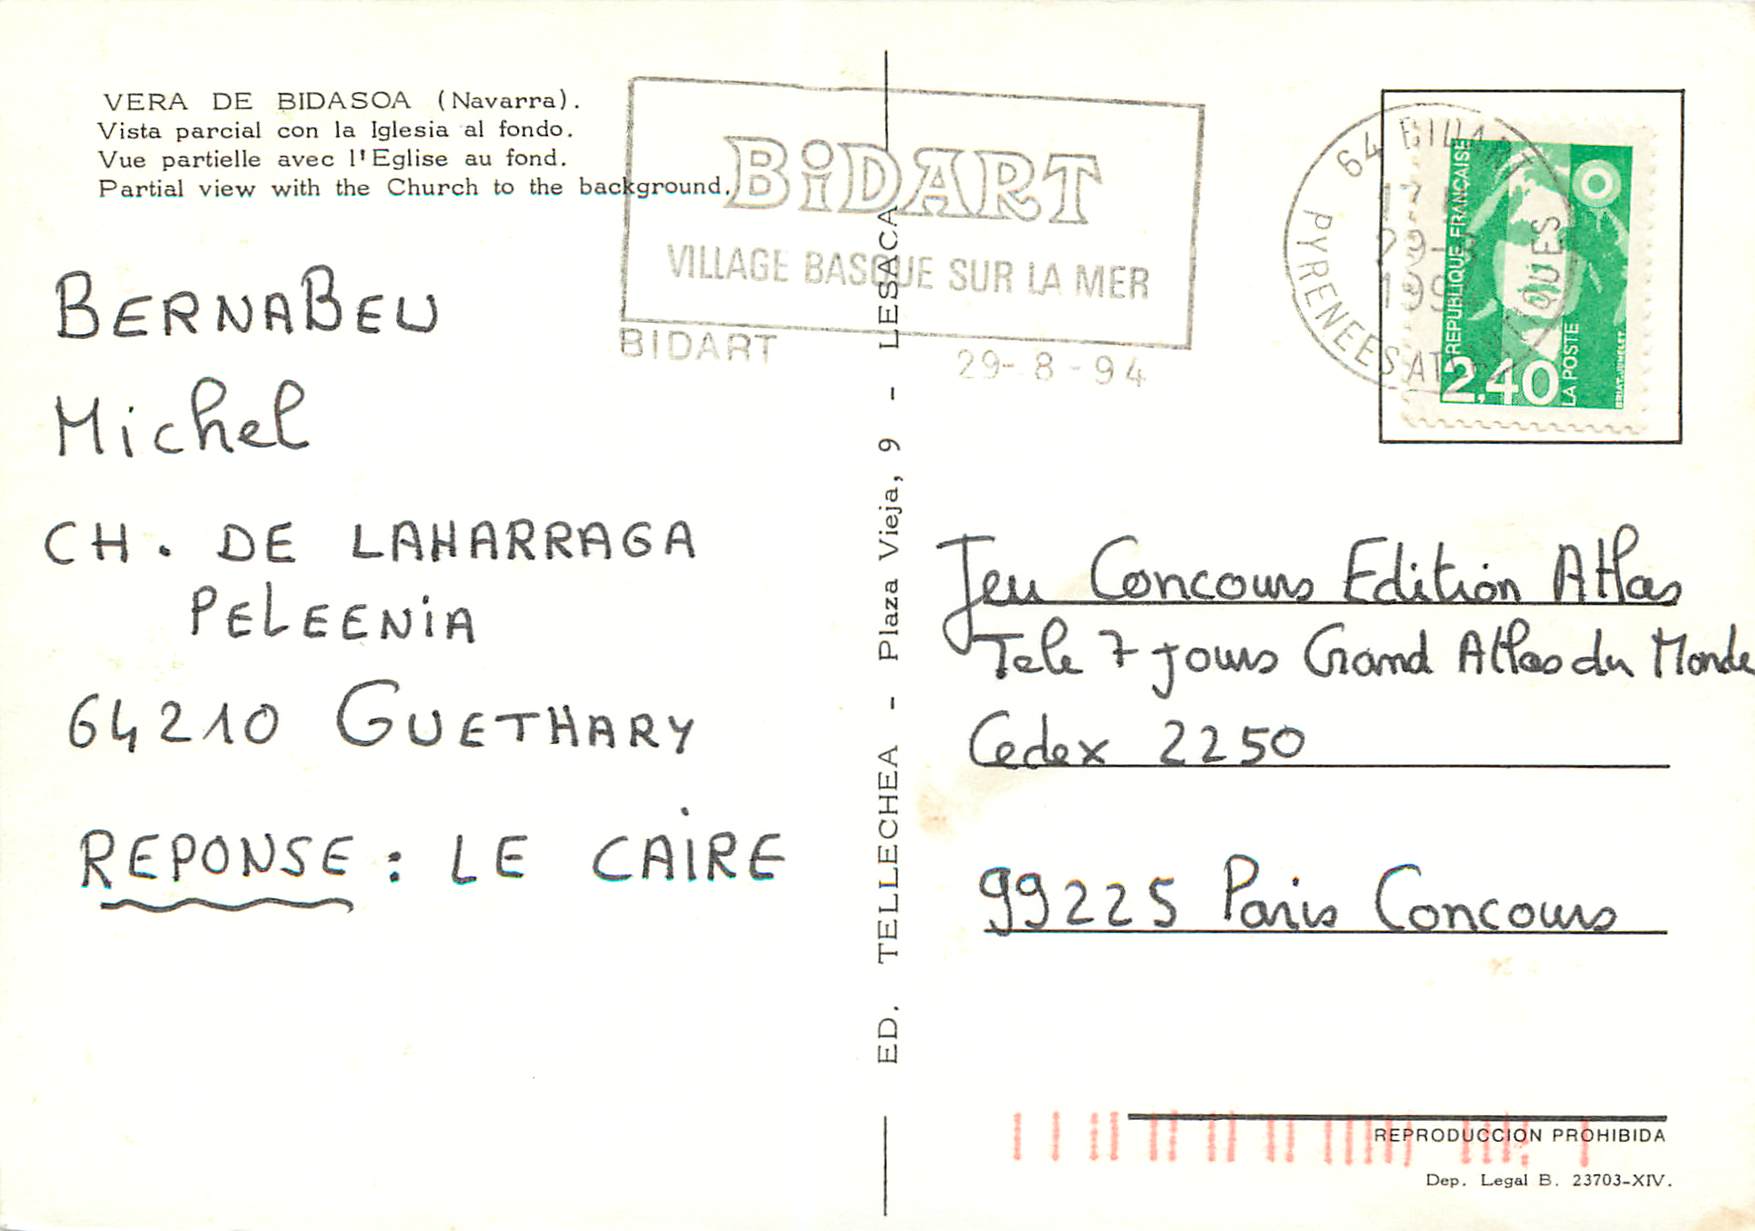 VERA DE BIDASOA (Navarra).
Vista parcial con la Iglesia al fondo.
Vue partielle avec l'Eglise au fond.
Partial view with the Church to the background.
BERNABEU
Michel
CH. DE LAHARRAGA
PELEENiA
64210 GUETHARY
REPONSE : LE CAIRE
BiDART
VILLAGE BASQUE SUR LA MER
BIDART 29-8-94
ED. TELLECHEA - Plaza Vieja, 9 - LESACA
64 BIDART
17
29-8
199
PYRENEES AT QUES
REPUBLIQUE FRANÇAISE
2,40
LA POSTE
BRIAT-JUMELET
Jeu Concours Edition Atlas
Tele 7 jours Grand Atlas du Monde
Cedex 2250
99225 Paris Concours
REPRODUCCION PROHIBIDA
Dep. Legal B. 23703-XIV.